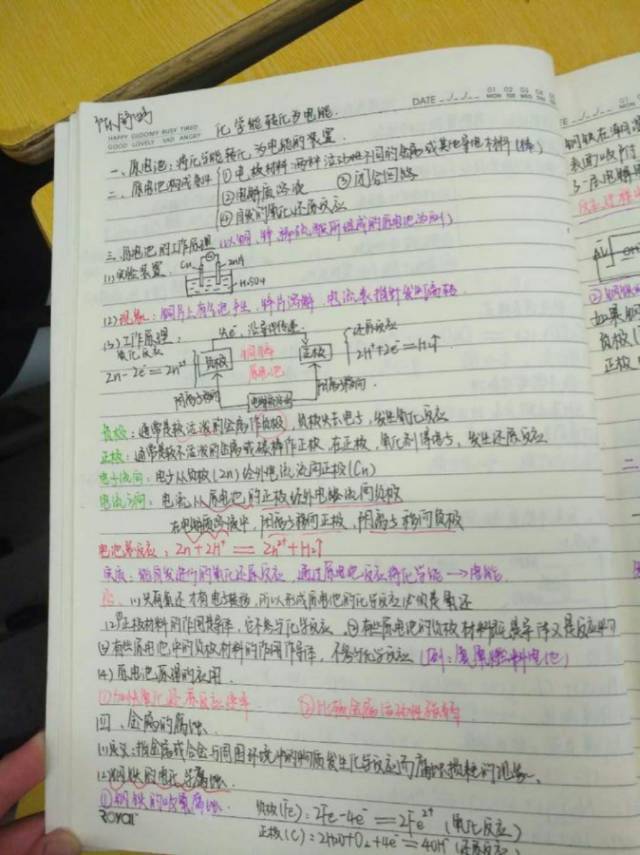 HAPPY GLOOMY BUSY TIRED
GOOD LOVELY SAD ANGRY
化学能转化为电能.
DATE
01 02 03 04
MON TUE WED THU
一、原电池:将化学能转化为电能的装置.
二、原电池构成条件 ①电极材料:两种活动性不同的金属或其他导电材料(棒)
②电解质溶液 ③闭合回路
④自发的氧化还原反应
三、原电池的工作原理(以铜、锌、稀硫酸所组成的原电池为例)
(1)实验装置: Cu Zn
H2SO4
(2)现象:铜片上有气泡产生,锌片溶解,电流表指针发生偏转
(3)工作原理:
氧化反应
Zn-2e⁻=Zn²⁺
负极
铜锌
原电池
正极
还原反应
2H⁺+2e⁻=H₂↑
阴离子移向
阳离子移向.
负极:通常是较活泼的金属作负极,负极失去电子,发生氧化反应
正极:通常是较不活泼的金属或碳棒作正极,在正极,氧化剂得电子,发生还原反应
电子流向:电子从负极(Zn)经外电路流向正极(Cu)
电流方向:电流从原电池的正极经外电路流向负极
在电解质溶液中,阳离子移向正极,阴离子移向负极
电池总反应:Zn+2H⁺=Zn²⁺+H₂↑
实质:能自发进行的氧化还原反应,通过原电池反应将化学能→电能.
(1)只有氧还才有电子转移,所以形成原电池的化学反应必须是氧还
(2)①正极材料的作用是导体,它不参与化学反应,②有些原电池的负极材料既是导体又是反应物
③有些原电池中的负极材料的作用作导体,不参与化学反应(例:氢氧燃料电池)
(4)原电池原理的应用
①加快氧化还原反应速率 ②比较金属活动性强弱
四、金属的腐蚀
(1)定义:指金属或合金与周围环境中的物质发生化学反应而腐蚀损耗的现象.
(2)钢铁的电化学腐蚀.
①钢铁的吸氧腐蚀. 负极(Fe):2Fe-4e⁻=2Fe²⁺(氧化反应)
正极(C):2H₂O+O₂+4e⁻=4OH⁻(还原反应)
ROYAL